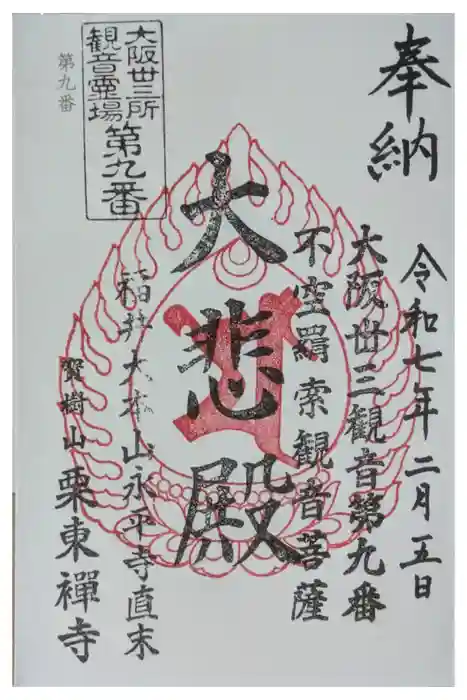 奉納
令和七年二月五日
大阪丗三観音第九番
不空羂索観音菩薩
大悲殿
福井大本山永平寺直末
寶樹山栗東禪寺
大阪丗三所
観音霊場
第九番
第九番